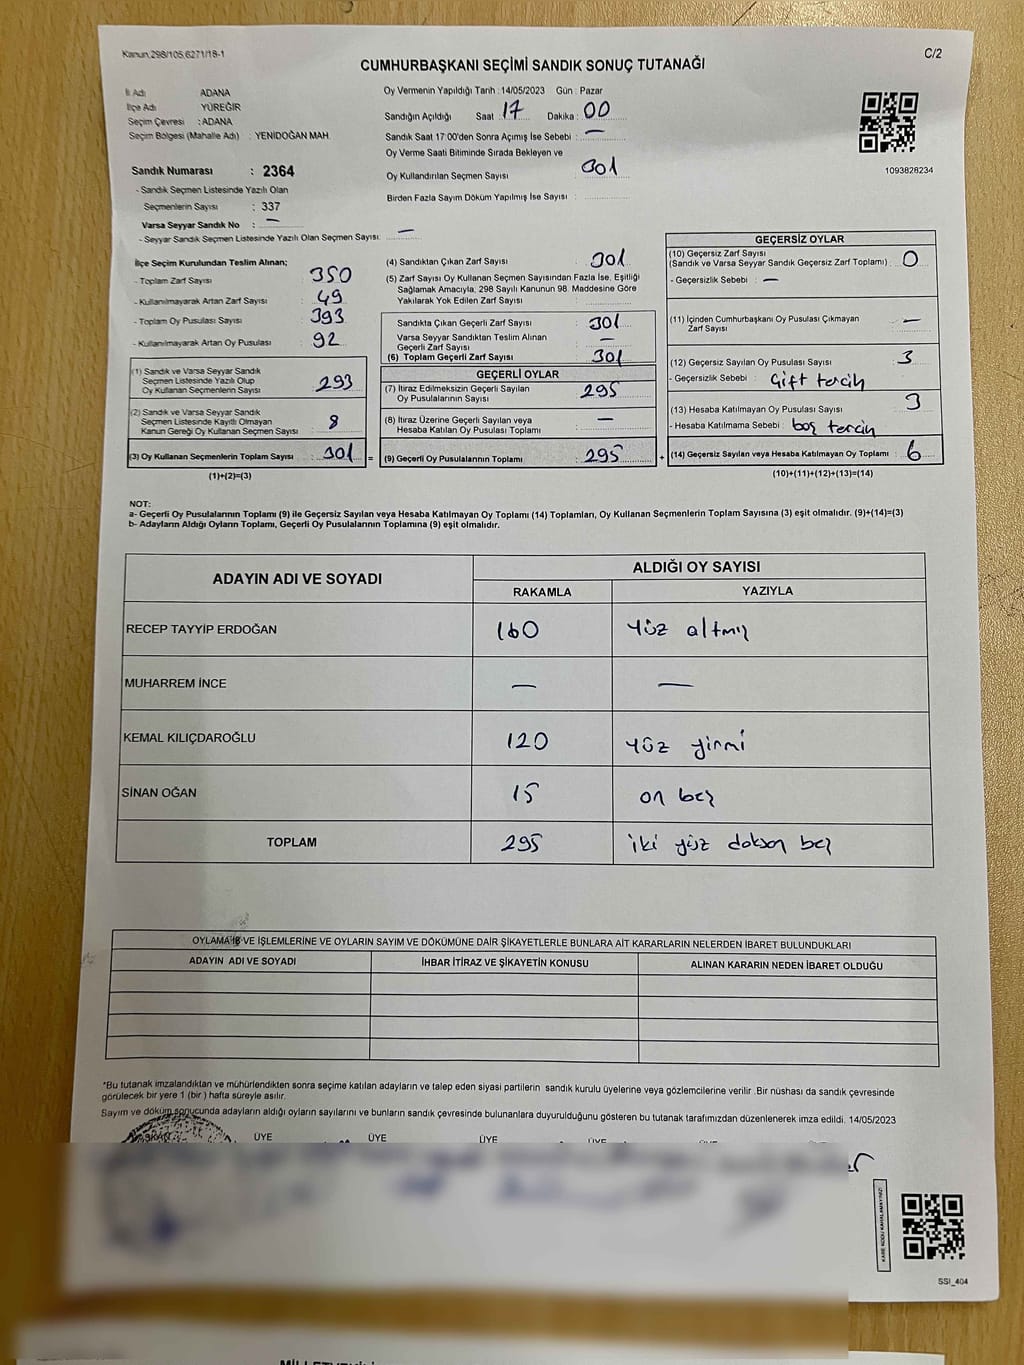 Kanun,298/105,6271/18-1
C/2
CUMHURBAŞKANI SEÇİMİ SANDIK SONUÇ TUTANAĞI
İl Adı ADANA
İlçe Adı YÜREĞİR
Seçim Çevresi : ADANA
Seçim Bölgesi (Mahalle Adı) : YENİDOĞAN MAH.
Sandık Numarası : 2364
- Sandık Seçmen Listesinde Yazılı Olan
Seçmenlerin Sayısı : 337
Varsa Seyyar Sandık No : —
- Seyyar Sandık Seçmen Listesinde Yazılı Olan Seçmen Sayısı: —
Oy Vermenin Yapıldığı Tarih : 14/05/2023 Gün : Pazar
Sandığın Açıldığı Saat : 17 Dakika : 00
Sandık Saat 17:00'den Sonra Açımış İse Sebebi : —
Oy Verme Saati Bitiminde Sırada Bekleyen ve
Oy Kullandırılan Seçmen Sayısı : 301
Birden Fazla Sayım Döküm Yapılmış İse Sayısı :
1093828234
İlçe Seçim Kurulundan Teslim Alınan;
- Toplam Zarf Sayısı : 350
- Kullanılmayarak Artan Zarf Sayısı : 49
- Toplam Oy Pusulası Sayısı : 393
- Kullanılmayarak Artan Oy Pusulası : 92
(1) Sandık ve Varsa Seyyar Sandık
Seçmen Listesinde Yazılı Olup
Oy Kullanan Seçmenlerin Sayısı : 293
(2) Sandık ve Varsa Seyyar Sandık
Seçmen Listesinde Kayıtlı Olmayan
Kanun Gereği Oy Kullanan Seçmen Sayısı : 8
(3) Oy Kullanan Seçmenlerin Toplam Sayısı : 301 =
(1)+(2)=(3)
(4) Sandıktan Çıkan Zarf Sayısı : 301
(5) Zarf Sayısı Oy Kullanan Seçmen Sayısından Fazla İse, Eşitliği
Sağlamak Amacıyla, 298 Sayılı Kanunun 98. Maddesine Göre
Yakılarak Yok Edilen Zarf Sayısı :
Sandıkta Çıkan Geçerli Zarf Sayısı : 301
Varsa Seyyar Sandıktan Teslim Alınan
Geçerli Zarf Sayısı : —
(6) Toplam Geçerli Zarf Sayısı : 301
GEÇERLİ OYLAR
(7) İtiraz Edilmeksizin Geçerli Sayılan
Oy Pusulalarının Sayısı : 295
(8) İtiraz Üzerine Geçerli Sayılan veya
Hesaba Katılan Oy Pusulası Toplamı : —
(9) Geçerli Oy Pusulalarının Toplamı : 295 +
GEÇERSİZ OYLAR
(10) Geçersiz Zarf Sayısı
(Sandık ve Varsa Seyyar Sandık Geçersiz Zarf Toplamı) : 0
- Geçersizlik Sebebi : —
(11) İçinden Cumhurbaşkanı Oy Pusulası Çıkmayan
Zarf Sayısı : —
(12) Geçersiz Sayılan Oy Pusulası Sayısı : 3
- Geçersizlik Sebebi : Çift tercih
(13) Hesaba Katılmayan Oy Pusulası Sayısı : 3
- Hesaba Katılmama Sebebi : boş tercih
(14) Geçersiz Sayılan veya Hesaba Katılmayan Oy Toplamı : 6
(10)+(11)+(12)+(13)=(14)
NOT:
a- Geçerli Oy Pusulalarının Toplamı (9) ile Geçersiz Sayılan veya Hesaba Katılmayan Oy Toplamı (14) Toplamları, Oy Kullanan Seçmenlerin Toplam Sayısına (3) eşit olmalıdır. (9)+(14)=(3)
b- Adayların Aldığı Oyların Toplamı, Geçerli Oy Pusulalarının Toplamına (9) eşit olmalıdır.
ADAYIN ADI VE SOYADI ALDIĞI OY SAYISI
RAKAMLA YAZIYLA
RECEP TAYYİP ERDOĞAN 160 Yüz altmış
MUHARREM İNCE — —
KEMAL KILIÇDAROĞLU 120 yüz yirmi
SİNAN OĞAN 15 on beş
TOPLAM 295 iki yüz doksan beş
OYLAMA VE İŞLEMLERİNE VE OYLARIN SAYIM VE DÖKÜMÜNE DAİR ŞİKAYETLERLE BUNLARA AİT KARARLARIN NELERDEN İBARET BULUNDUKLARI
ADAYIN ADI VE SOYADI İHBAR İTİRAZ VE ŞİKAYETİN KONUSU ALINAN KARARIN NEDEN İBARET OLDUĞU
*Bu tutanak imzalandıktan ve mühürlendikten sonra seçime katılan adayların ve talep eden siyasi partilerin sandık kurulu üyelerine veya gözlemcilerine verilir .Bir nüshası da sandık çevresinde
görülecek bir yere 1 (bir ) hafta süreyle asılır.
Sayım ve döküm sonucunda adayların aldığı oyların sayılarını ve bunların sandık çevresinde bulunanlara duyurulduğunu gösteren bu tutanak tarafımızdan düzenlenerek imza edildi. 14/05/2023
BAŞKAN ÜYE ÜYE ÜYE ÜYE ÜYE
SSI_404